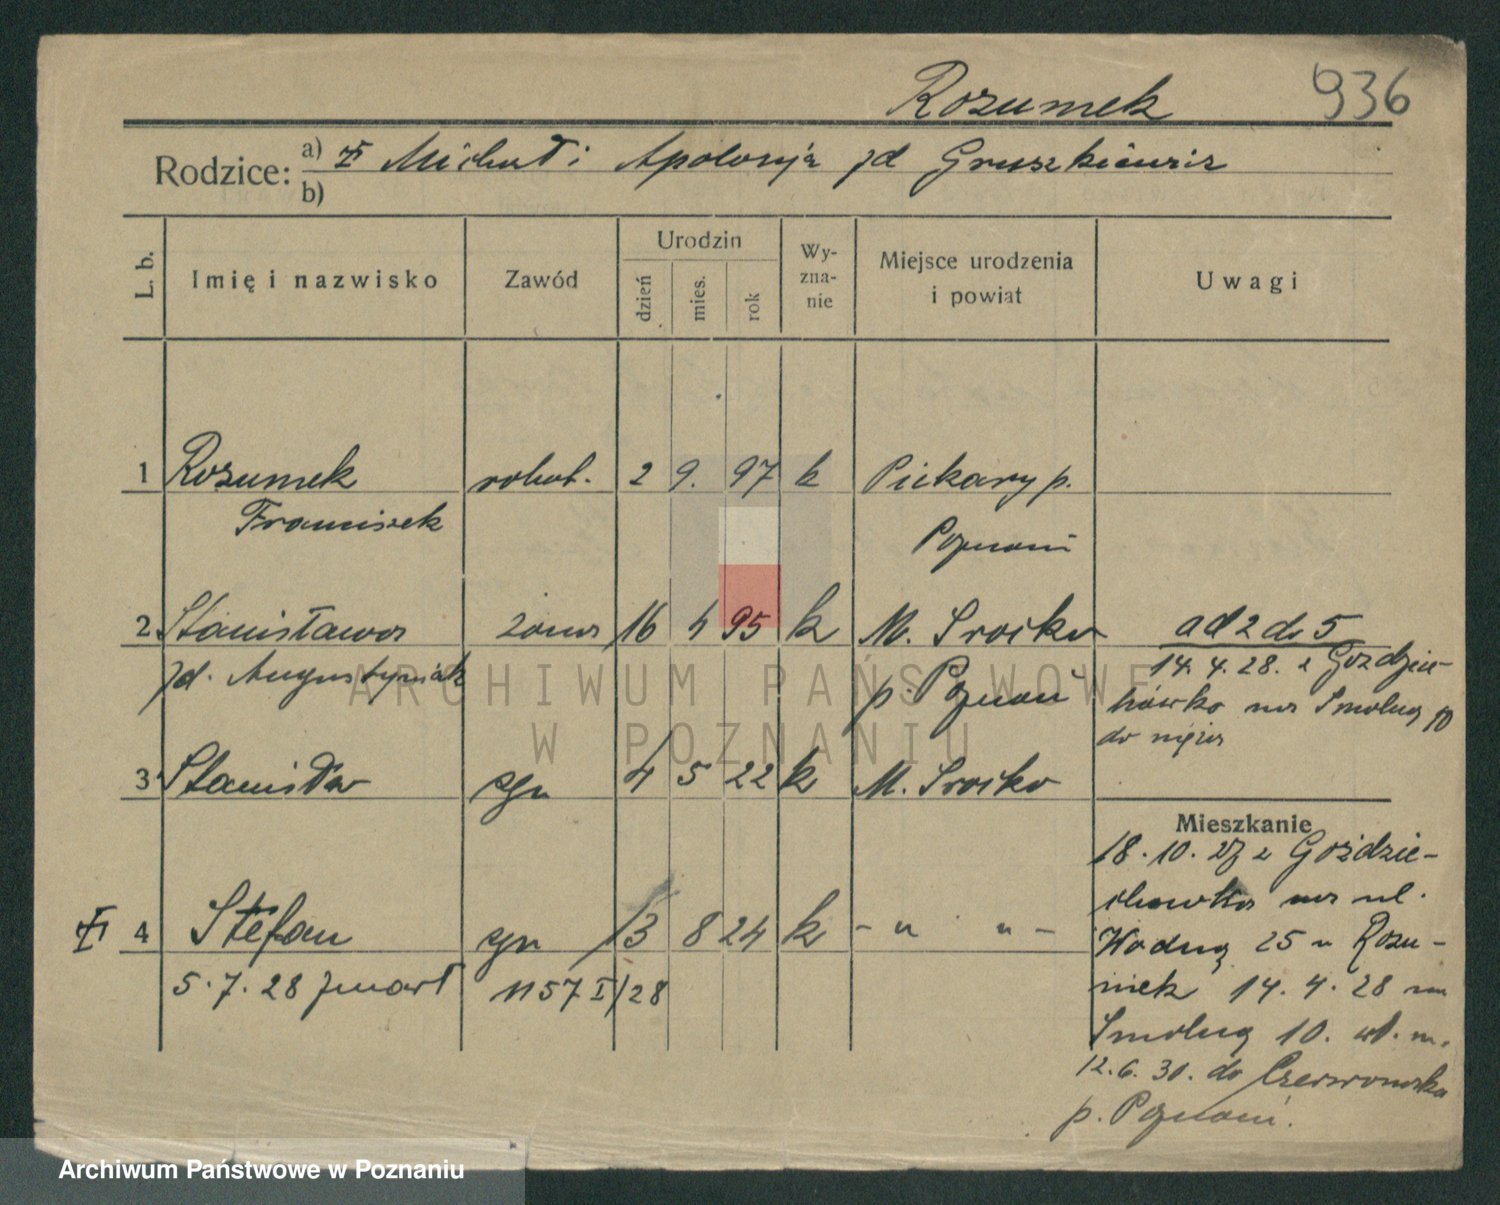 Rozumek 936
Rodzice: a) Michał i Apolonja zd Gruszkiewicz
b)
L. b. Imię i nazwisko Zawód Urodzin dzień mies. rok Wy-zna-nie Miejsce urodzenia i powiat Uwagi
1 Rozumek robot. 2 9. 97 k Piekary p.
Franciszek Poznań
2 Stanisława żona 16 4 95 k M. Srocko ad 2 do 5
zd. Augustyniak p. Poznań 14. 4. 28. z Goździe-
chówko na Smolną 10
do męża
3 Stanisław syn 4 5 22 k M. Srocko
Mieszkanie
18. 10. 27 z Goździe-
chowka na ul.
4 Stefan syn 13 8 24 k - " " -
Wodną 25 u Rozu-
5. 7. 28 zmarł 1157 I/28
mek 14. 4. 28 na
Smolną 10. wł. m.
12. 6. 30. do Czerwonaka
p. Poznań.
ARCHIWUM PAŃSTWOWE
W POZNANIU
Archiwum Państwowe w Poznaniu